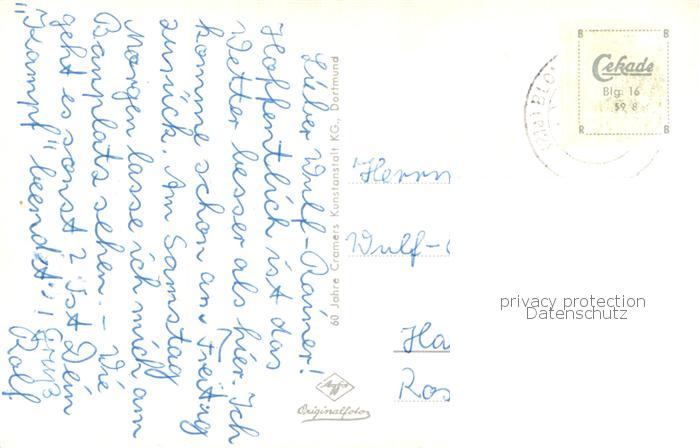 Lieber Wulf-Rainer!
Hoffentlich ist das
Wetter besser als hier. Ich
komme schon am Freitag
zurück. Am Samstag
Morgen lasse ich mich am
Bauplatz sehen. – Wie
geht es sonst? Ist Dein
"Kampf" beendet? ! Gruß
Rolf
60 Jahre Cramers Kunstanstalt KG., Dortmund
Herrn
Wulf-
Ha
Ros
Agfa
Originalfoto
B B
Cekade
Blg. 16
59 8
R B
privacy protection
Datenschutz